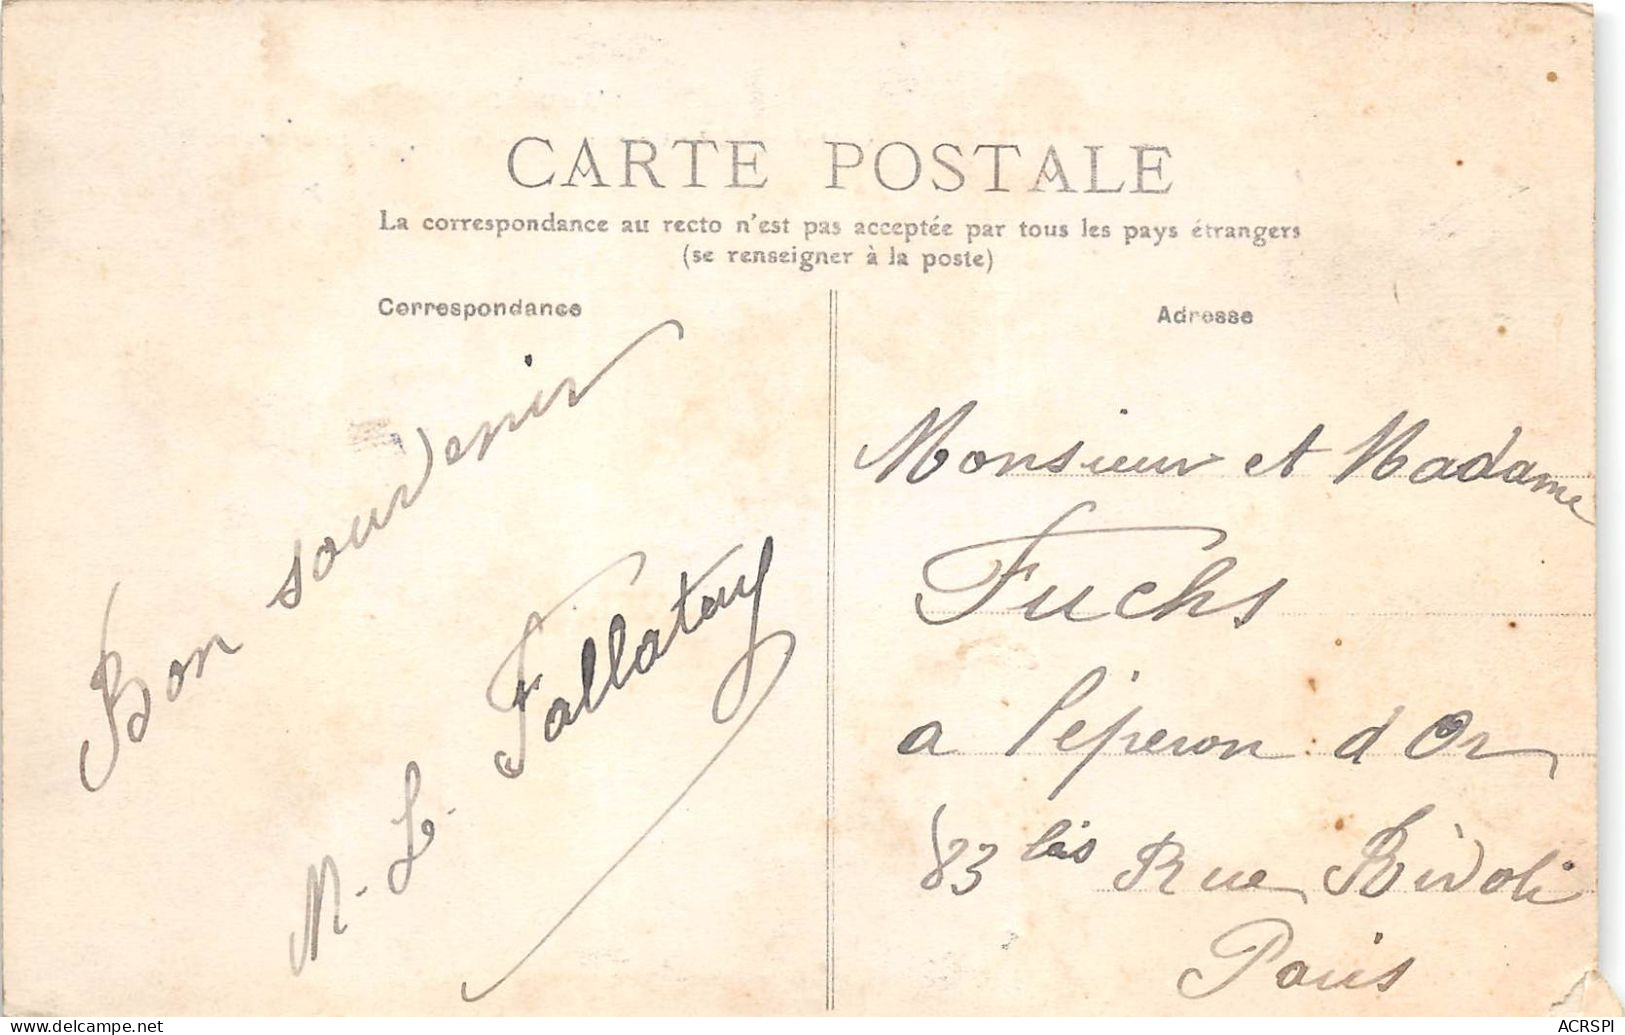 CARTE POSTALE
La correspondance au recto n'est pas acceptée par tous les pays étrangers
(se renseigner à la poste)
Correspondance
Bon souvenir
M. L. Fallatuy
Adresse
Monsieur et Madame
Fuchs
a l'éperon d'Or
83 bis Rue Rivoli
Paris
ACRSPI